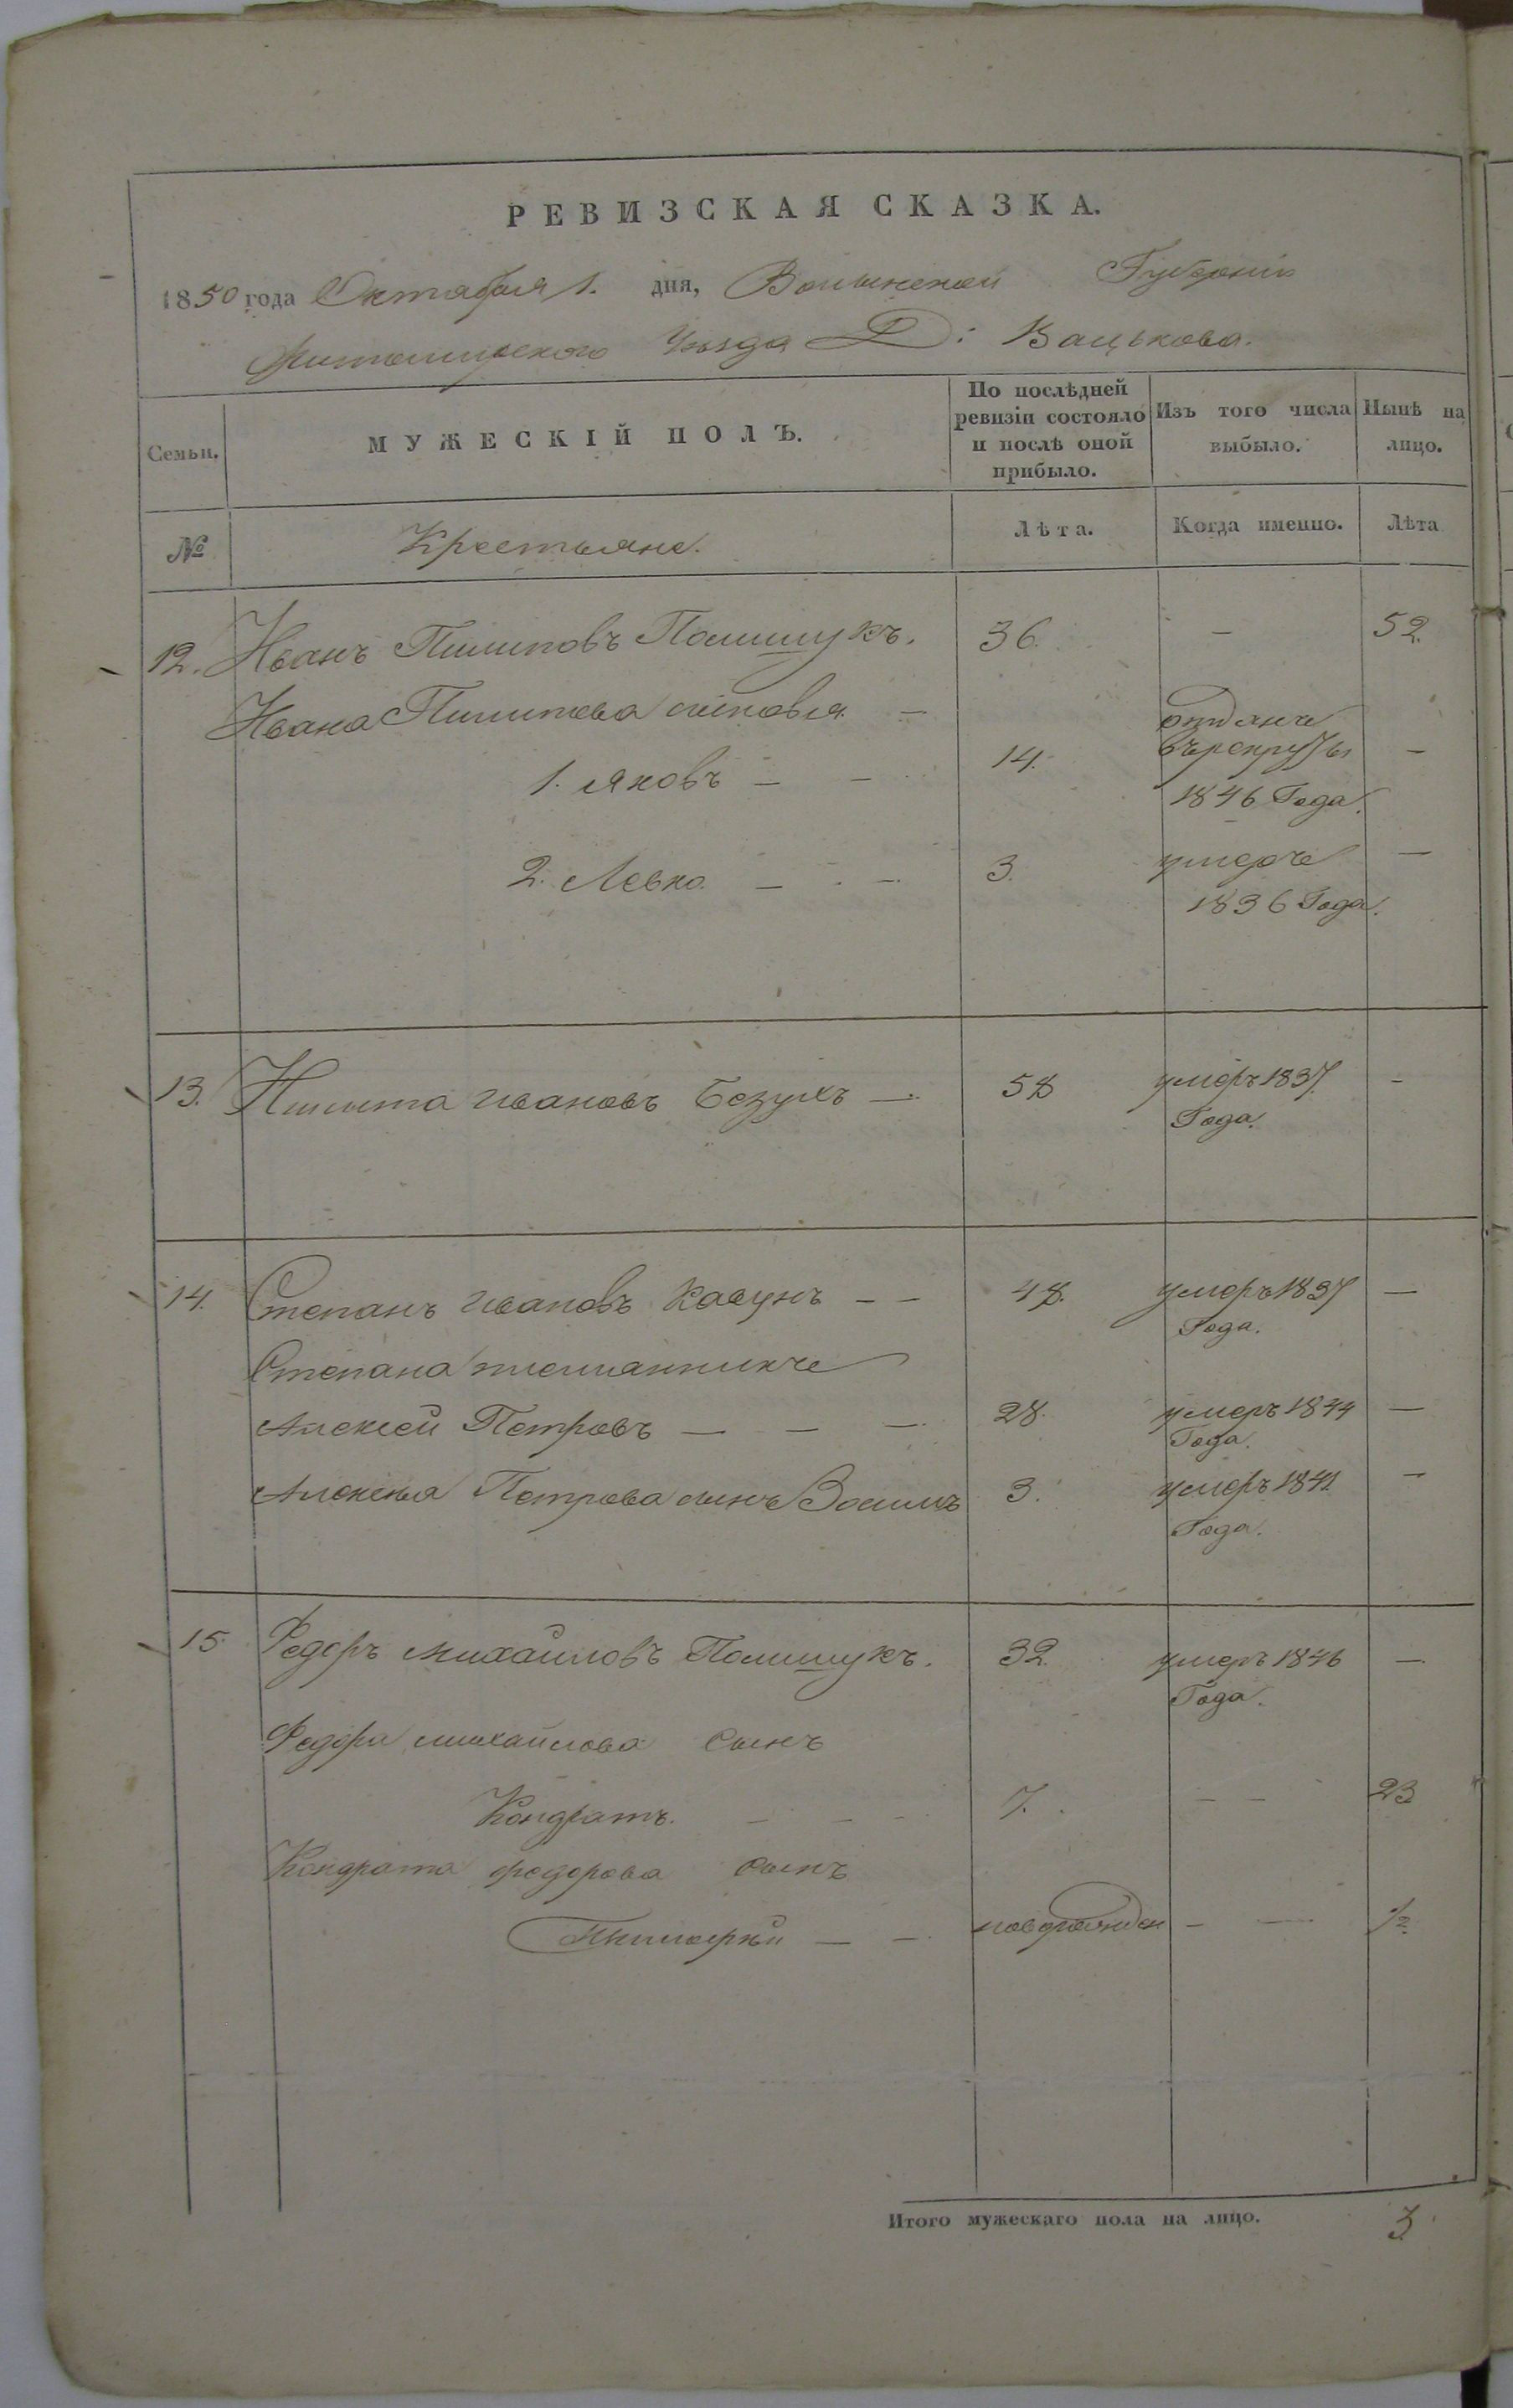 РЕВИЗСКАЯ СКАЗКА.
1850 года Октября 1. дня, Волынской Губерніи
Житомирского Уѣзда Д: Вацькова.
Семьи.
МУЖЕСКІЙ ПОЛЪ.
По послѣдней
ревизіи состояло
и послѣ оной
прибыло.
Изъ того числа
выбыло.
Нынѣ на
лицо.
№
Крестьяне.
Лѣта.
Когда именно.
Лѣта
12. Иванъ Пилиповъ Полищукъ. 36. — 52.
Ивана Пилипова сыновья —
1. Яковъ — — 14. отданъ
въ рекруты —
1846 Года.
2. Левко. — — 3. умеръ —
1836 Года.
13. Никита Ивановъ Безухъ — 58 умеръ 1837. —
Года.
14. Степанъ Ивановъ — — 48. умеръ 1837 —
Года.
Степана племянникъ
Алексей Петровъ — — — 28. умеръ 1844 —
Года.
Алексея Петрова сынъ 3. умеръ —
Года.
15. Федоръ Михайловъ Полищукъ. 32. умеръ 1846 —
Года.
Федора Михайлова Сынъ
Кондратъ. — — — 7. — — 23
Кондрата Федорова Сынъ
— — новорожден — — 1/2
Итого мужескаго пола на лицо. 3